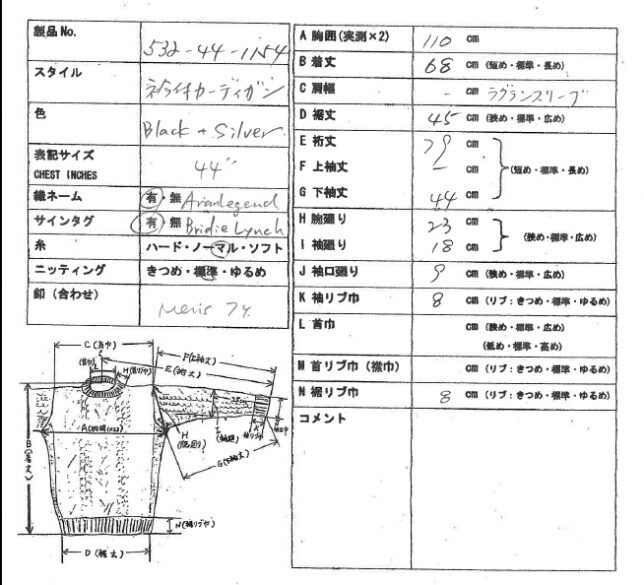 製品No.
532-44-1154
スタイル
衿付カーディガン
色
Black + Silver
表記サイズ
CHEST INCHES
44"
織ネーム
有・無 Aranlegend
サインタグ
有・無 Bridie Lynch
糸
ハード・ノーマル・ソフト
ニッティング
きつめ・標準・ゆるめ
釦（合わせ）
A 胸囲(実測×2) 110 cm
B 着丈 68 cm (短め・標準・長め)
C 肩幅 - cm ラグランスリーブ
D 裾丈 45 cm (狭め・標準・広め)
E 裄丈 79 cm
F 上袖丈 - cm (短め・標準・長め)
G 下袖丈 44 cm
H 腕廻り 23 cm
I 袖廻り 18 cm (狭め・標準・広め)
J 袖口廻り 9 cm (狭め・標準・広め)
K 袖リブ巾 8 cm (リブ：きつめ・標準・ゆるめ)
L 首巾 cm (狭め・標準・広め)
(低め・標準・高め)
M 首リブ巾（襟巾） cm(リブ：きつめ・標準・ゆるめ)
N 裾リブ巾 8 cm(リブ：きつめ・標準・ゆるめ)
コメント
C(肩巾)
F(上袖丈)
E(裄丈)
L
(首巾)
M(首リブ巾)
B(着丈)
A(胸囲1/2)
H
(腕廻り)
I
(袖廻)
K
G(下袖丈)
N(裾リブ巾)
D(裾丈)